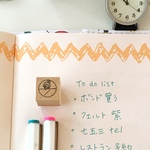 To do list
・ボンド買う
・フェルト 紫
・七五三 tel
・レストラン 予約